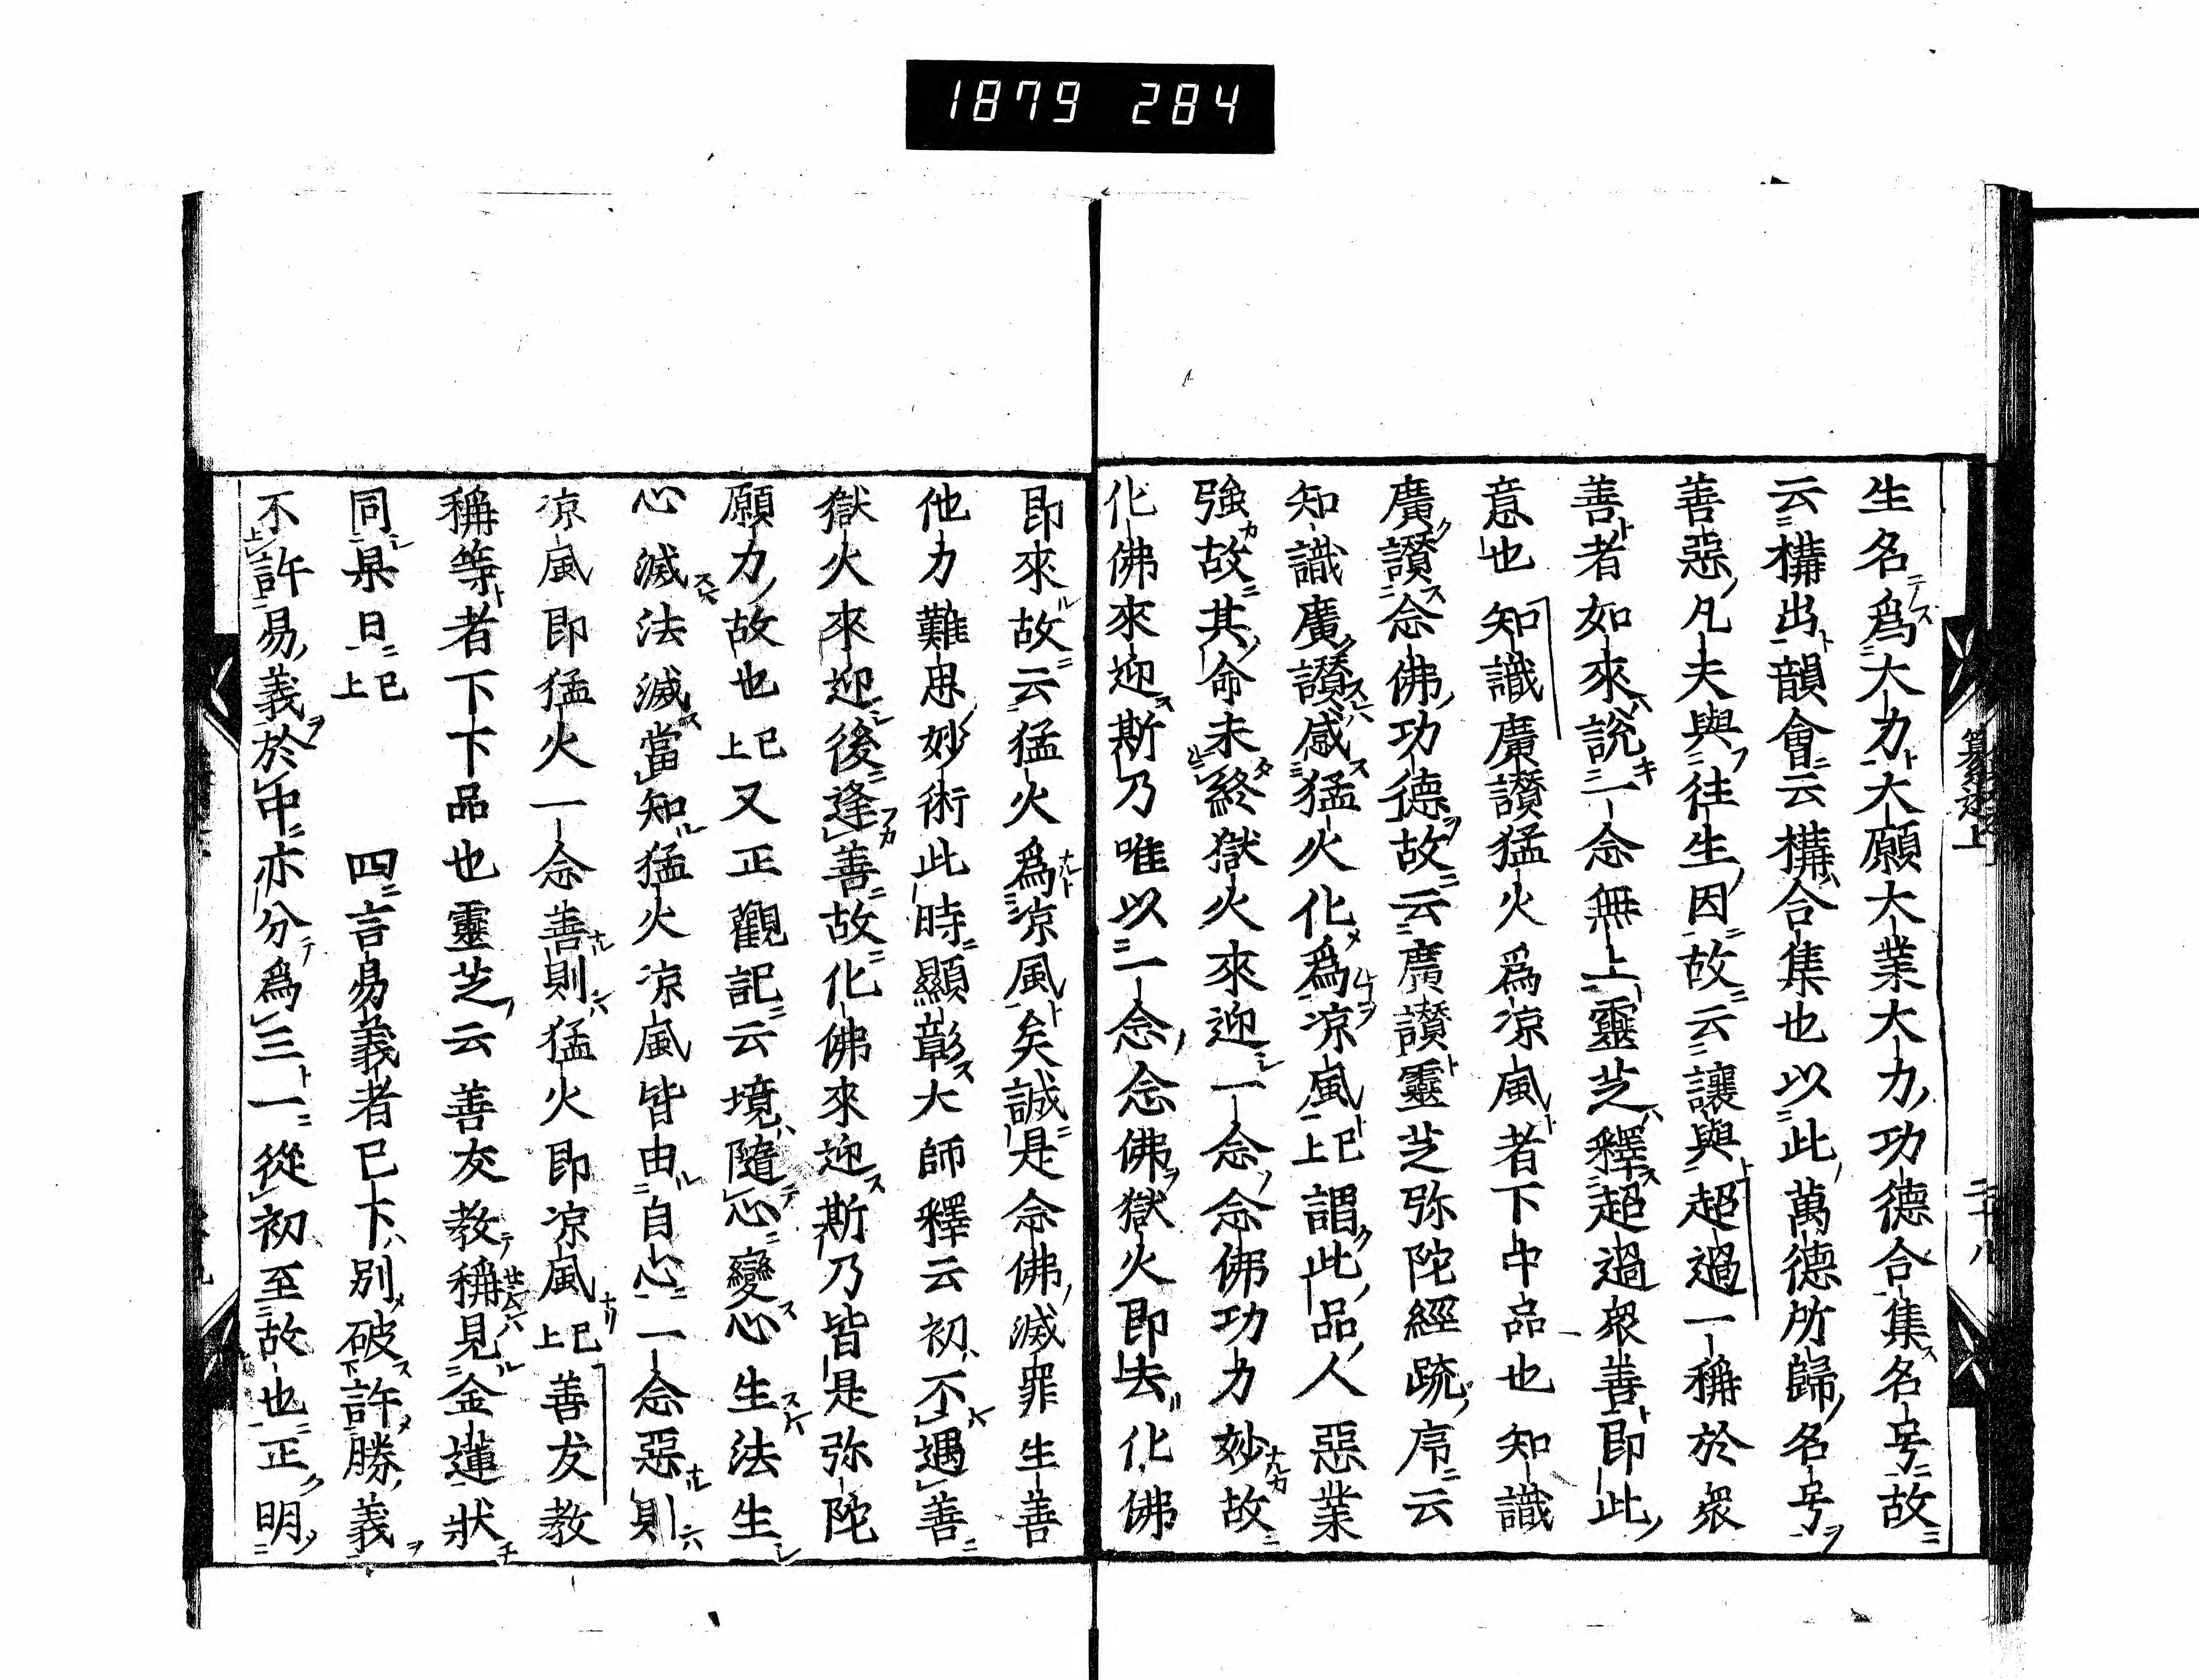 1879 284
生名爲大力大願大業大力功德合集名号故
云構出韻會云構合集也以此萬德所歸名号
善惡凡夫與往生因故云讓與超過一稱於衆
善者如來說一念無上靈芝釋超過衆善即此
意也知識廣讃猛火爲凉風者下中品也知識
廣讃念佛功德故云廣讃靈芝弥陀經疏序云
知識廣讃感猛火化爲凉風已上謂此品人惡業
強故其命未終獄火來迎一念念佛功力妙故
化佛來迎斯乃唯以一念念佛獄火即去化佛
即來故云猛火爲凉風矣誠是念佛滅罪生善
他力難思妙術此時顯彰大師釋云初不遇善
獄火來迎後逢善故化佛來迎斯乃皆是弥陀
願力故也已上又正觀記云境隨心變心生法生
心滅法滅當知猛火凉風皆由自心一念惡則
凉風即猛火一念善則猛火即凉風已上善友教
稱等者下下品也靈芝云善友教稱見金蓮狀
同果日已上　四言易義者已下別破許勝義
不許易義於中亦分爲三一從初至故也正明